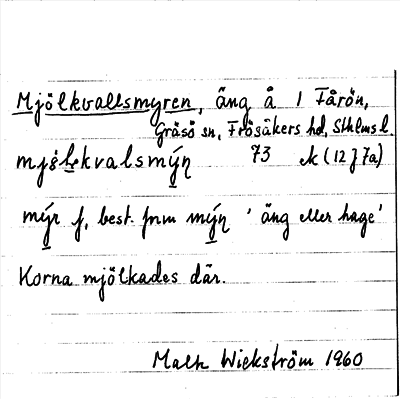 Mjölkvallsmyren, äng å 1 Fårön,
Gräsö sn, Frösåkers hd, Sthlms l.
mjö̀lkvalsmýn 73 k (12 J 7a)
mýr f, best. fnm mýn 'äng eller hage'
Korna mjölkades där.
Malte Wickström 1960